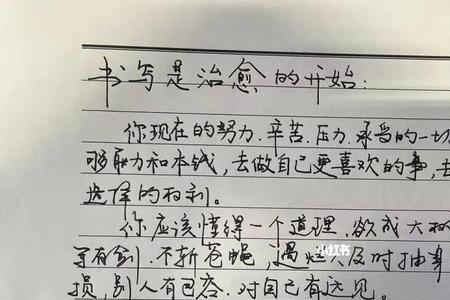 书写是治愈的开始:
你现在的努力.辛苦.压力.承受的一切
够能力和本钱,去做自己更喜欢的事,去
选择的权利。
你应该懂得一个道理,欲成大树
有剑.不斩苍蝇,遇烂人及时抽身
小红书
损,别人有包容.对自己有远见。